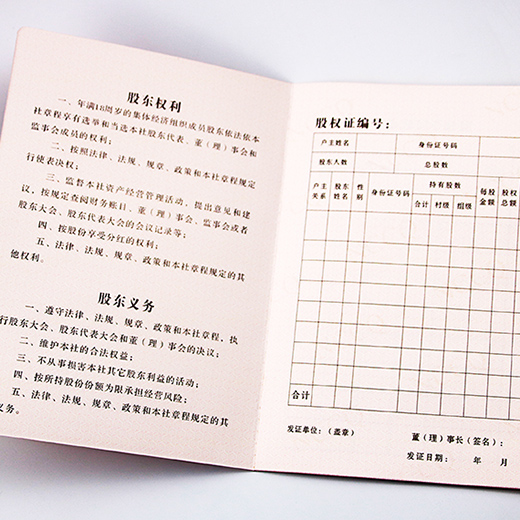 股东权利
一、年满18周岁的集体经济组织成员股东依法依本
社章程享有选举和当选本社股东代表、董（理）事会和
监事会成员的权利；
二、按照法律、法规、规章、政策和本社章程规定行
使表决权；
三、监督本社资产经营管理活动，提出意见和建
议，按规定查阅财务账目、董（理）事会、监事会或者
股东大会、股东代表大会的会议记录等；
四、按股份享受分红的权利；
五、法律、法规、规章、政策和本社章程规定的其
他权利。
股东义务
一、遵守法律、法规、规章、政策和本社章程，执
行股东大会、股东代表大会和董（理）事会的决议；
二、维护本社的合法权益；
三、不从事损害本社其它股东利益的活动；
四、按所持股份份额为限承担经营风险；
五、法律、法规、规章、政策和本社章程规定的其
义务。
股权证编号：
户主姓名 身份证号码
股东人数 总股数
户主关系 股东姓名 性别 身份证号码 持有股数 每股金额 股权总额
合计 村级 组级
合计
发证单位：（盖章） 董（理）事长（签名）：
发证日期： 年 月